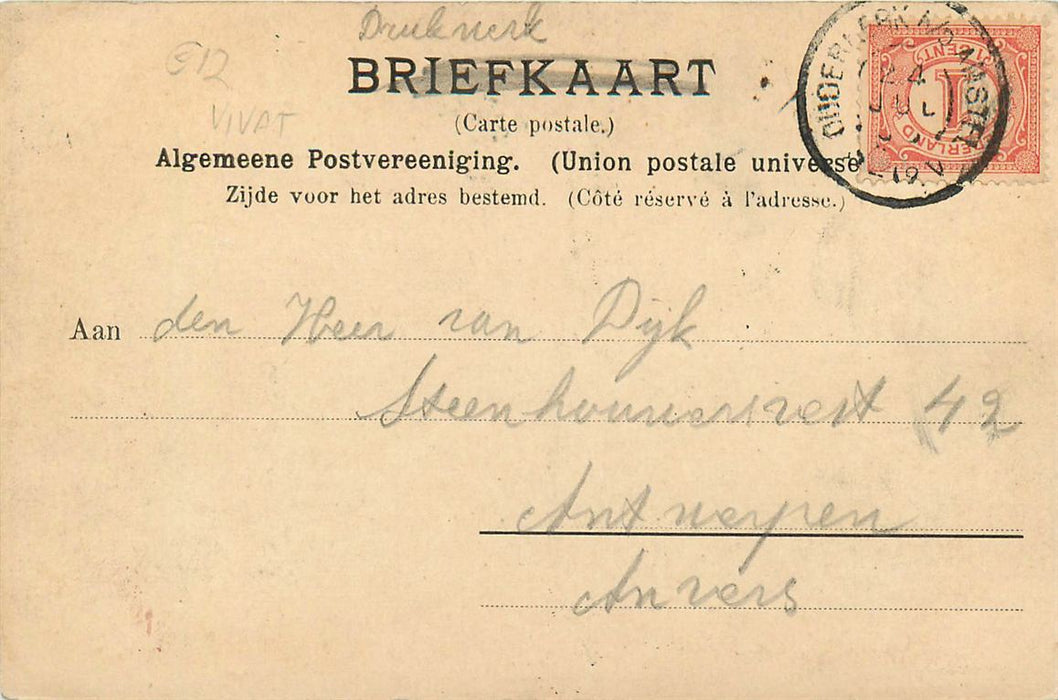 Drukwerk
€12
VIVAT
BRIEFKAART
(Carte postale.)
Algemeene Postvereeniging. (Union postale universe
Zijde voor het adres bestemd. (Côté réservé à l'adresse.)
OUDERKERK A/D AMSTEL
24
JUL
1 CENT
NEDERLAND
Aan den Heer van Dijk
Steenhouwersvest 42
Antwerpen
Anvers